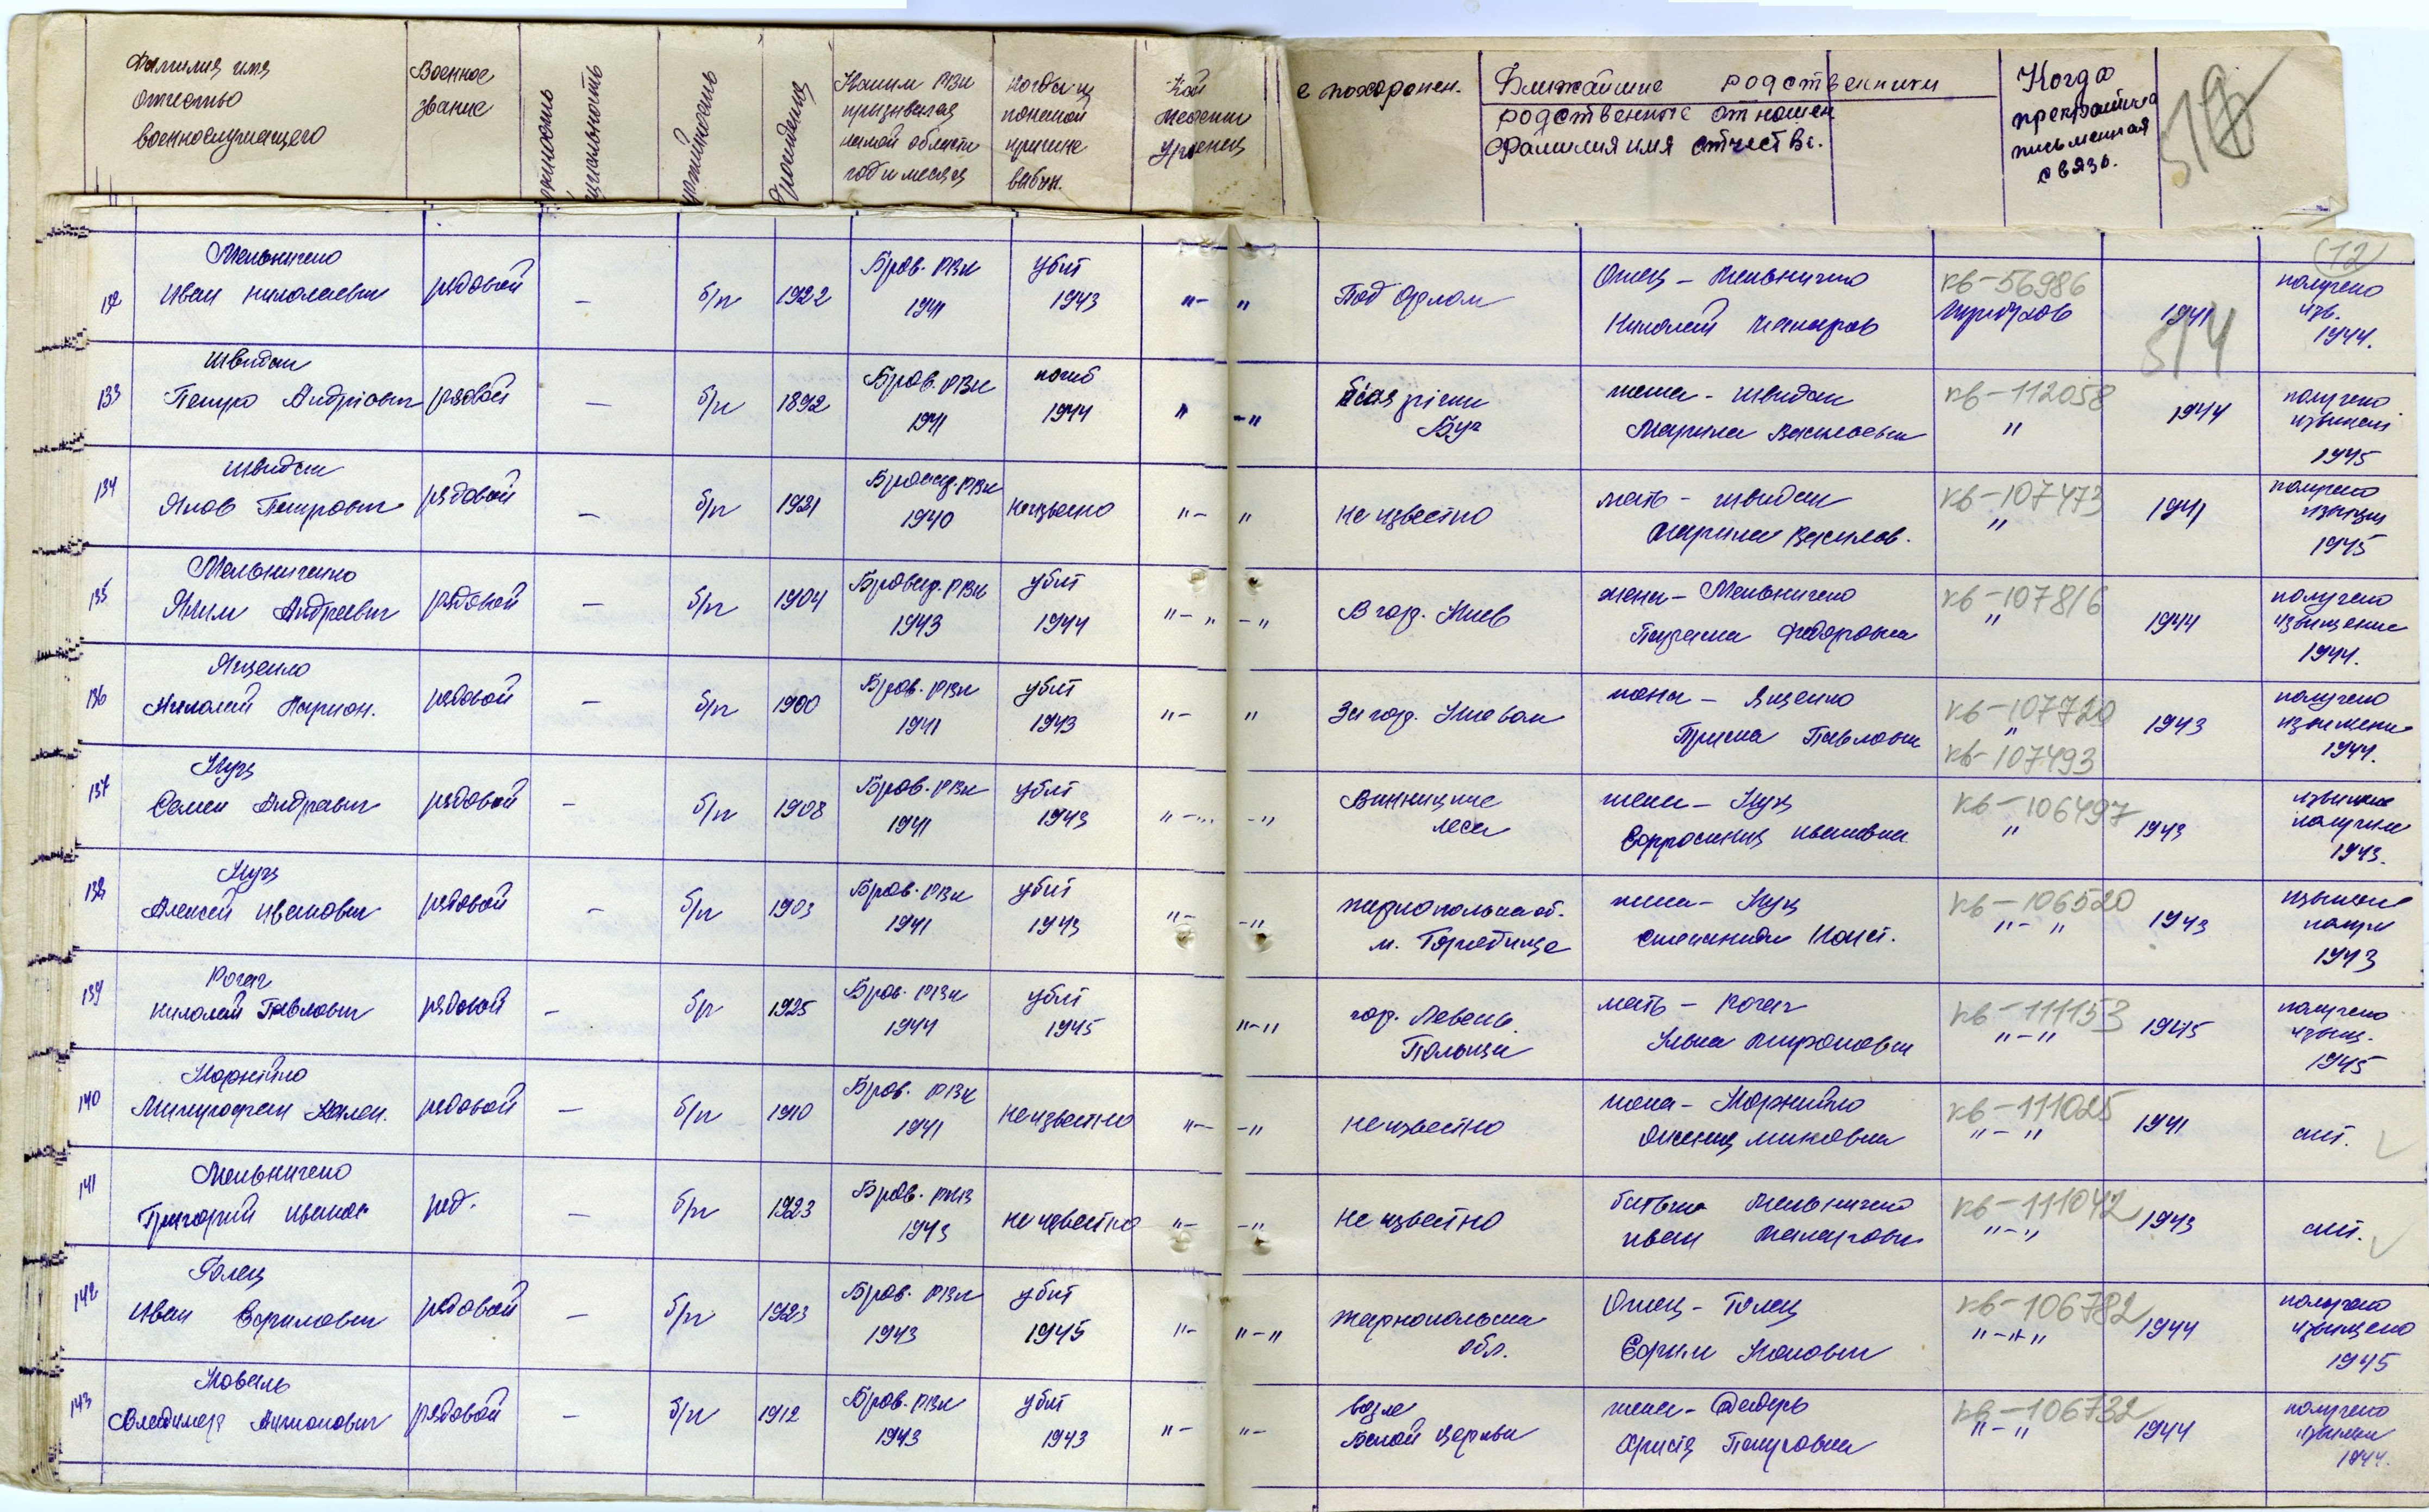 Фамилия имя
отчество
военнослужащего
Военное
звание
партийность
рождения
Каким РВК
призывался
какой области
год и месяц
когда и
по какой
причине
выбыл.
е похоронен.
Ближайшие родственники
родственные отношен
Фамилия имя отчестве.
Когда
прекратилась
письменная
связь.
(12)
514
132 Мельниченко
Иван Николаевич
рядовой
—
б/п
1922
Бров. РВК
1941
убит
1943
"- "
Под Орлом
Отец - Мельниченко
Николай Макаров
кв-56986
1941
получено
изв.
1944.
133 Швидак
Петро Андріович
рядовой
—
б/п
1892
Бров. РВК
1941
погиб
1944
" -"
біля річки
Буг
жена - Швидак
Марина Васильевна
кв-112058
"
1944
получено
1945
134 Швидак
Яков Петрович
рядовой
—
б/п
1921
Бровар. РВК
1940
неизвестно
"- "
неизвестно
мать - Швидак
Марина Василов.
кв-107473
"
1941
получено
1945
135 Мельниченко
Яким Андреевич
рядовой
—
б/п
1904
Бровар. РВК
1943
убит
1944
"- " -"
В гор. Киев
жена - Мельниченко
Федоровна
кв-107816
"
1944
получено
извещение
1944.
136 Ященко
Николай Ларион.
рядовой
—
б/п
1900
Бров. РВК
1941
убит
1943
"- "
За гор. Киевом
жена - Ященко
Павловна
кв-107720
"
кв-107493
1943
получено
1944.
137 Куц
Семен Андреевич
рядовой
—
б/п
1908
Бров. РВК
1941
убит
1943
"- -"
Винницкие
леса
жена - Куц
Ефросиния Ивановна
кв-106497
"
1943
получили
1943.
138 Куц
Алексей Иванович
рядовой
—
б/п
1903
Бров. РВК
1941
убит
1943
"- -"
м. Городище
жена - Куц
Степанида Конст.
кв-106520
"- "
1943
1943
139 Рогач
Николай Павлович
рядовой
—
б/п
1925
Бров. РВК
1944
убит
1945
"-"
гор. Левень.
Польща
мать - Рогач
Ульяна Мироновна
кв-111153
"-"
1945
получено
извещ.
1945
140 Корнейко
Митрофан
рядовой
—
б/п
1910
Бров. РВК
1941
неизвестно
"- -"
неизвестно
жена - Корнейко
кв-111025
"- "
1941
141 Мельниченко
Григорий Иванов
ряд.
—
б/п
1923
Бров. РКВ
1943
неизвестно
"- -"
неизвестно
батько Мельниченко
Иван Макарович
кв-111042
"-"
1943
142 Голец
Иван Ефимович
рядовой
—
б/п
1923
Бров. РВК
1943
убит
1945
"- "-"
Тарнопольска
обл.
Отец - Голец
Ефим
кв-106782
1944
получено
извещено
1945
143 Коваль
Владимир Антонович
рядовой
—
б/п
1912
Бров. РВК
1943
убит
1943
"- "-
возле
Белой Церкви
жена -
Христя Петровна
кв-106732
"-"
1944
получено
1944.